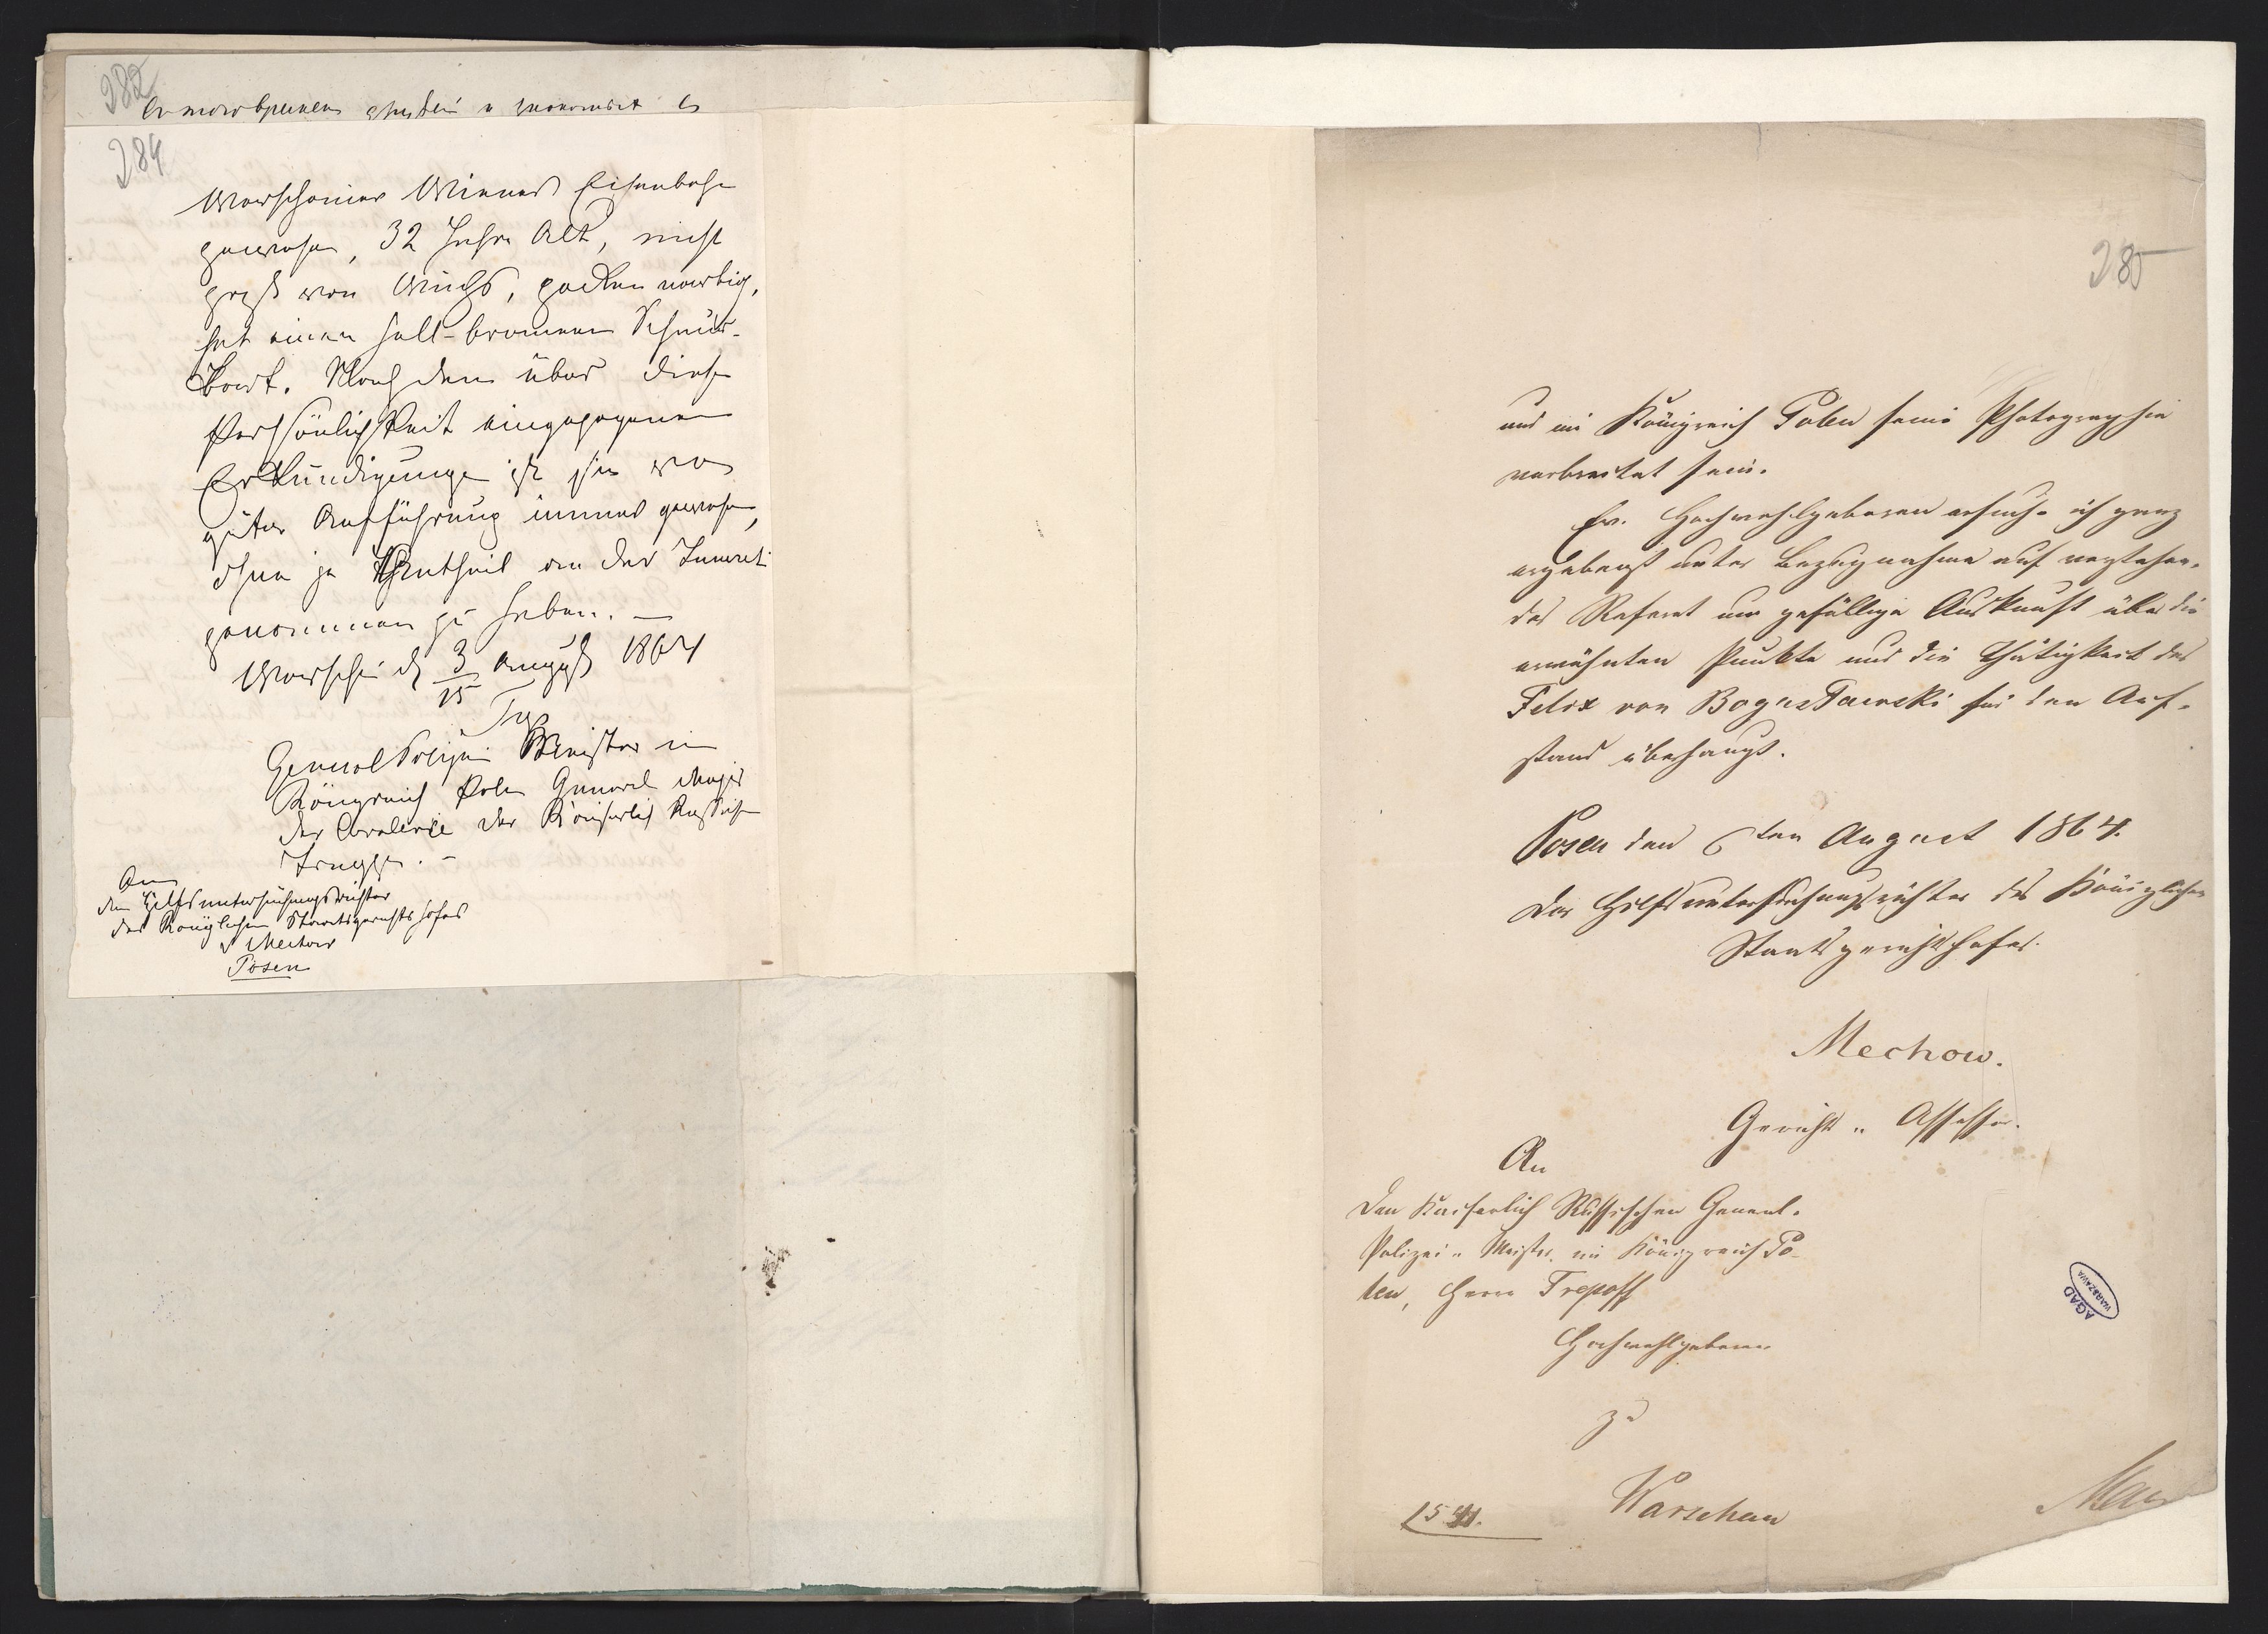 282
284
Warschauer Wiener Eisenbahn
gewesen, 32 Jahre Alt, nicht
groß von Wuchs, pocken narbig,
hat einen hell-braunen Schnur-
bart. Nach den über diese
Persönlichkeit eingezogenen
Erkundigungen ist sie von
guter Aufführung immer gewesen,
ohne je Antheil an der Insurrect.
genommen zu haben. —
Warschau d 3/15 August 1864
General Polizei Meister im
Königreich Polen General Major
der Cavalerie der Kaiserlich Russischen
Truppen. -
An
den Hilfsuntersuchungsrichter
des Königlichen Staatsgerichtshofes
H Mechow
Posen
285
und im Königreich Polen seine Photographie
verbreitet sein.
Ew. Hochwohlgeboren ersuche ich ganz
ergebenst unter Bezugnahme auf vorstehen-
des Referat um gefällige Auskunft über die
erwähnten Punkte und die Thätigkeit des
Felix von Bogusławski für den Auf-
stand überhaupt.
Posen den 6ten August 1864.
Der Hilfsuntersuchungsrichter des Königlichen
Staatsgerichtshofes.
Mechow.
Gerichts-Assessor.
An
den Kaiserlich Russischen General-
Polizei-Meister im Königreich Po-
len, Herrn Trepoff
Hochwohlgeboren
zu
Warschau
AGAD
WARSZAWA